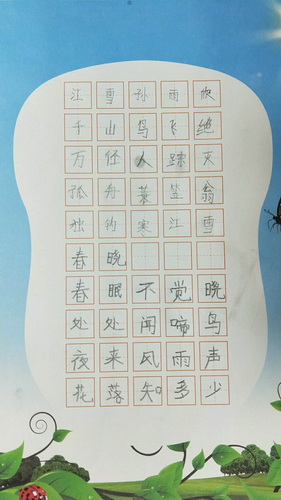 江雪孙雨
千山鸟飞绝
万径人踪灭
孤舟蓑笠翁
独钓寒江雪
春晓
春眠不觉晓
处处闻啼鸟
夜来风雨声
花落知多少